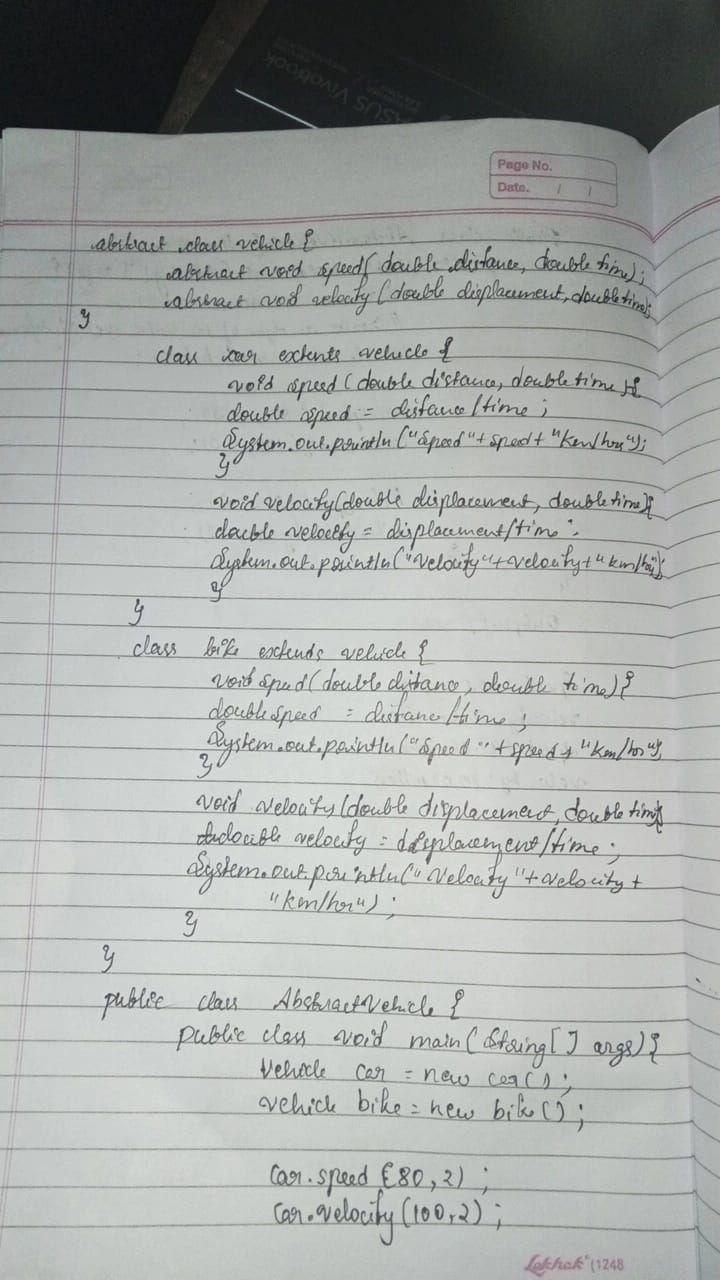 ASUS Vivobook
Page No.
Date. / /
abstract class vehicle {
abstract void speed( double distance, double time);
abstract void velocity (double displacement, double time);
}
class car extents vehicle {
void speed (double distance, double time){
double speed = distance/time ;
System.out.println ("Speed"+ speed + "km/hr");
}
void velocity(double displacement, double time){
double velocity = displacement/time ;
System.out.println ("velocity"+velocity+"km/hr");
}
}
class bike extends vehicle {
void speed(double distance, double time){
double speed = distance/time ;
System.out.println("Speed"+speed+"km/hr");
}
void velocity(double displacement, double time){
double velocity = displacement/time ;
System.out.println("Velocity"+velocity+
"km/hr") ;
}
}
public class AbstractVehicle {
public class void main( String[] args){
Vehicle car = new car() ;
vehicle bike = new bike() ;
Car.speed (80,2) ;
Car.velocity (100,2) ;
Lekhak (1248